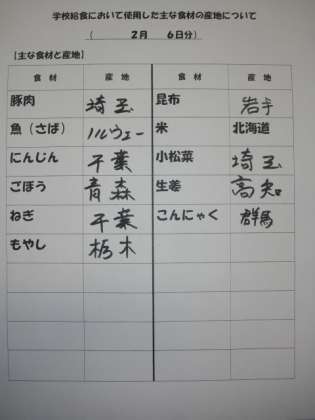 学校給食において使用した主な食材の産地について
( 2月 6日分)
【主な食材と産地】
食材 産地 食材 産地
豚肉 埼玉 昆布 岩手
魚(さば) ノルウェー 米 北海道
にんじん 千葉 小松菜 埼玉
ごぼう 青森 生姜 高知
ねぎ 千葉 こんにゃく 群馬
もやし 栃木